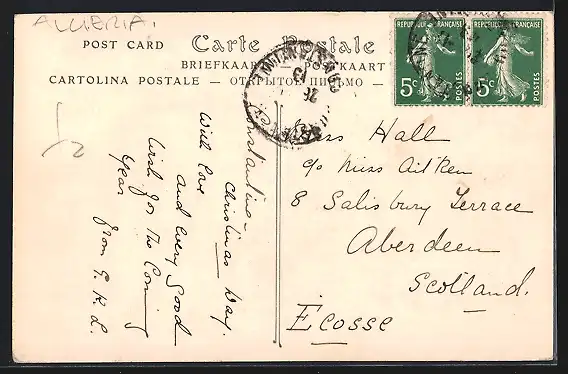 ALGERIA.
POST CARD Carte Postale
BRIEFKAART — POSTKAART
CARTOLINA POSTALE — ОТКРЫТОЕ ПИСЬМО —
REPUBLIQUE FRANÇAISE
5c POSTES
REPUBLIQUE FRANÇAISE
5c POSTES
1/2
Constantine
Christmas Day.
With love
and every good
wish for the Coming
Year
from G. K. L.
Miss Hall
c/o Miss Aitken
8 Salisbury Terrace
Aberdeen
Scotland.
Ecosse